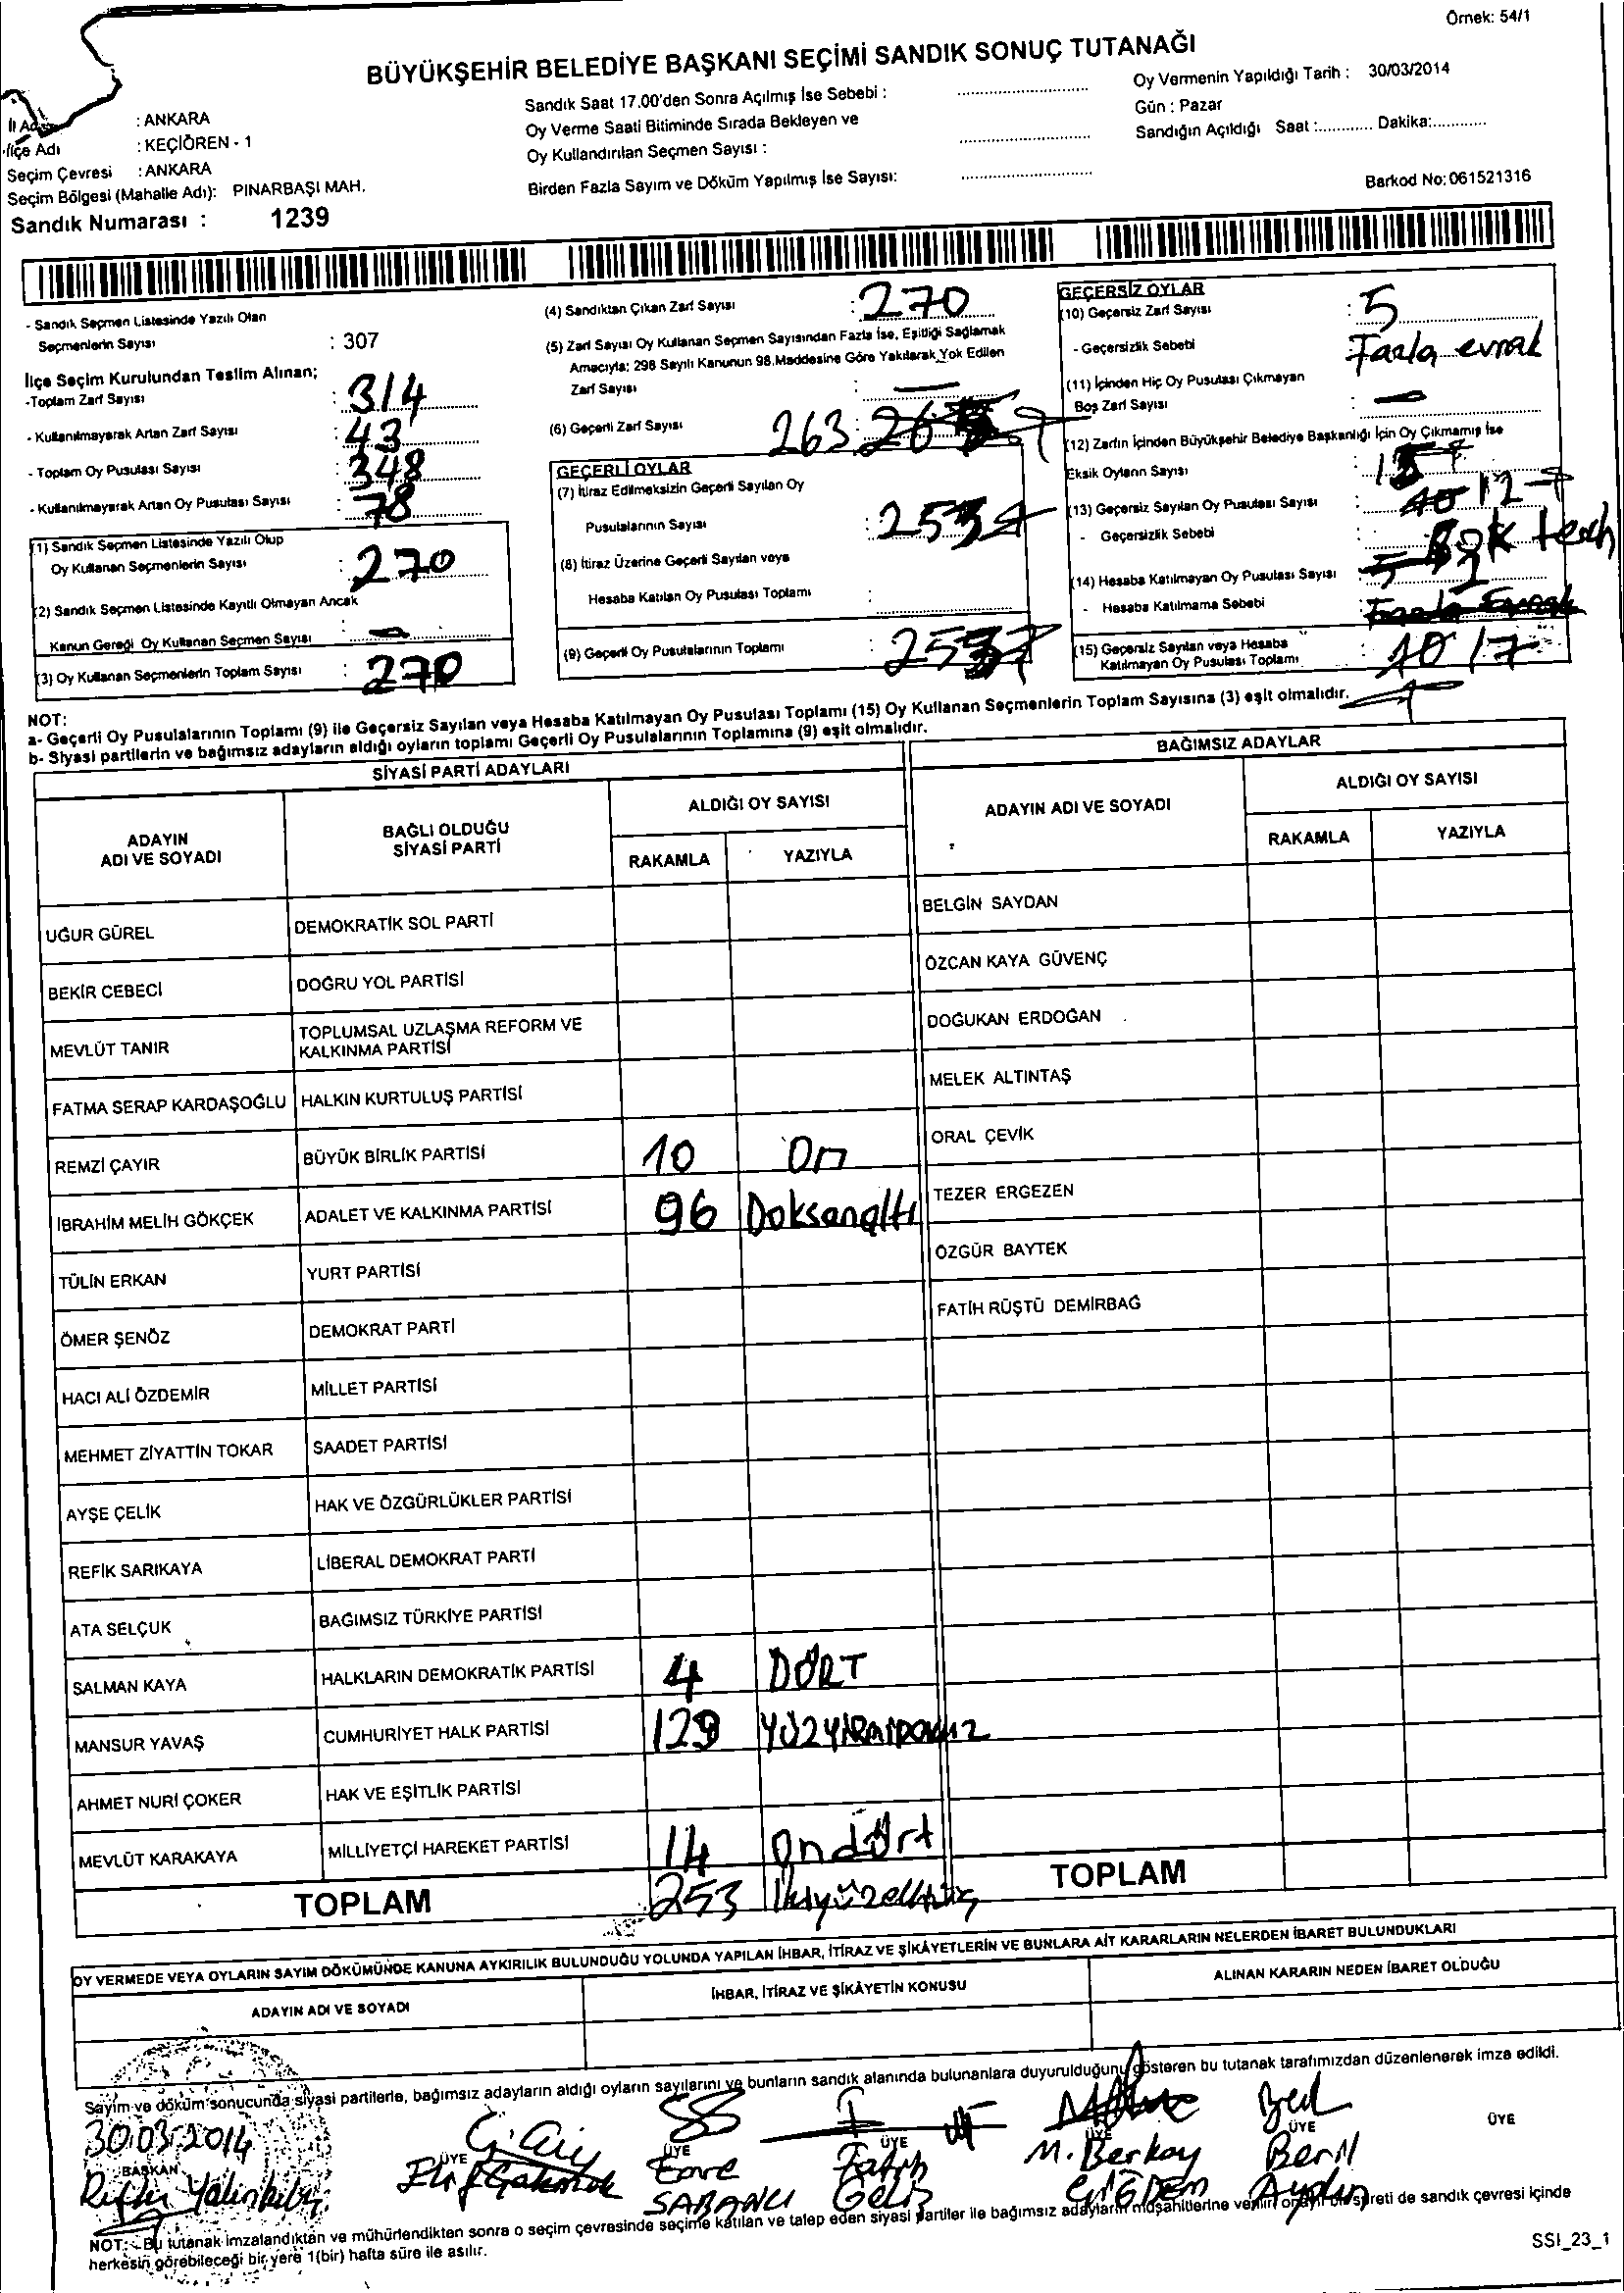 Örnek: 54/1
BÜYÜKŞEHİR BELEDİYE BAŞKANI SEÇİMİ SANDIK SONUÇ TUTANAĞI
İl Adı : ANKARA
İlçe Adı : KEÇİÖREN - 1
Seçim Çevresi : ANKARA
Seçim Bölgesi (Mahalle Adı): PINARBAŞI MAH.
Sandık Numarası : 1239
Sandık Saat 17.00'den Sonra Açılmış İse Sebebi :
Oy Verme Saati Bitiminde Sırada Bekleyen ve
Oy Kullandırılan Seçmen Sayısı :
Birden Fazla Sayım ve Döküm Yapılmış İse Sayısı:
Oy Vermenin Yapıldığı Tarih : 30/03/2014
Gün : Pazar
Sandığın Açıldığı Saat :............ Dakika:............
Barkod No: 061521316
- Sandık Seçmen Listesinde Yazılı Olan
Seçmenlerin Sayısı : 307
İlçe Seçim Kurulundan Teslim Alınan;
-Toplam Zarf Sayısı : 314
- Kullanılmayarak Artan Zarf Sayısı : 43
- Toplam Oy Pusulası Sayısı : 348
- Kullanılmayarak Artan Oy Pusulası Sayısı : 78
(1) Sandık Seçmen Listesinde Yazılı Olup
Oy Kullanan Seçmenlerin Sayısı : 270
(2) Sandık Seçmen Listesinde Kayıtlı Olmayan Ancak
Kanun Gereği Oy Kullanan Seçmen Sayısı : -
(3) Oy Kullanan Seçmenlerin Toplam Sayısı : 270
(4) Sandıktan Çıkan Zarf Sayısı : 270
(5) Zarf Sayısı Oy Kullanan Seçmen Sayısından Fazla İse, Eşitliği Sağlamak
Amacıyla; 298 Sayılı Kanunun 98.Maddesine Göre Yakılarak Yok Edilen
Zarf Sayısı : -
(6) Geçerli Zarf Sayısı 263
GEÇERLİ OYLAR
(7) İtiraz Edilmeksizin Geçerli Sayılan Oy
Pusulalarının Sayısı : 253
(8) İtiraz Üzerine Geçerli Sayılan veya
Hesaba Katılan Oy Pusulası Toplamı :
(9) Geçerli Oy Pusulalarının Toplamı : 253
GEÇERSİZ OYLAR
(10) Geçersiz Zarf Sayısı : 5
- Geçersizlik Sebebi Fazla evrak
(11) İçinden Hiç Oy Pusulası Çıkmayan
Boş Zarf Sayısı : -
(12) Zarfın İçinden Büyükşehir Belediye Başkanlığı İçin Oy Çıkmamış İse
Eksik Oyların Sayısı :
(13) Geçersiz Sayılan Oy Pusulası Sayısı : 12
- Geçersizlik Sebebi :
(14) Hesaba Katılmayan Oy Pusulası Sayısı :
- Hesaba Katılmama Sebebi : Fazla Evrak
(15) Geçersiz Sayılan veya Hesaba
Katılmayan Oy Pusulası Toplamı : 10 17
NOT:
a- Geçerli Oy Pusulalarının Toplamı (9) ile Geçersiz Sayılan veya Hesaba Katılmayan Oy Pusulası Toplamı (15) Oy Kullanan Seçmenlerin Toplam Sayısına (3) eşit olmalıdır.
b- Siyasi partilerin ve bağımsız adayların aldığı oyların toplamı Geçerli Oy Pusulalarının Toplamına (9) eşit olmalıdır.
SİYASİ PARTİ ADAYLARI
ADAYIN ADI VE SOYADI BAĞLI OLDUĞU SİYASİ PARTİ ALDIĞI OY SAYISI
RAKAMLA YAZIYLA
UĞUR GÜREL DEMOKRATİK SOL PARTİ
BEKİR CEBECİ DOĞRU YOL PARTİSİ
MEVLÜT TANIR TOPLUMSAL UZLAŞMA REFORM VE KALKINMA PARTİSİ
FATMA SERAP KARDAŞOĞLU HALKIN KURTULUŞ PARTİSİ
REMZİ ÇAYIR BÜYÜK BİRLİK PARTİSİ 10 On
İBRAHİM MELİH GÖKÇEK ADALET VE KALKINMA PARTİSİ 96 Doksanaltı
TÜLİN ERKAN YURT PARTİSİ
ÖMER ŞENÖZ DEMOKRAT PARTİ
HACI ALİ ÖZDEMİR MİLLET PARTİSİ
MEHMET ZİYATTİN TOKAR SAADET PARTİSİ
AYŞE ÇELİK HAK VE ÖZGÜRLÜKLER PARTİSİ
REFİK SARIKAYA LİBERAL DEMOKRAT PARTİ
ATA SELÇUK BAĞIMSIZ TÜRKİYE PARTİSİ
SALMAN KAYA HALKLARIN DEMOKRATİK PARTİSİ 4 DÖRT
MANSUR YAVAŞ CUMHURİYET HALK PARTİSİ 129 YÜZYİRMİDOKUZ
AHMET NURİ ÇOKER HAK VE EŞİTLİK PARTİSİ
MEVLÜT KARAKAYA MİLLİYETÇİ HAREKET PARTİSİ 14 Ondört
TOPLAM 253 İkiyüzelliüç
BAĞIMSIZ ADAYLAR
ADAYIN ADI VE SOYADI ALDIĞI OY SAYISI
RAKAMLA YAZIYLA
BELGİN SAYDAN
ÖZCAN KAYA GÜVENÇ
DOĞUKAN ERDOĞAN
MELEK ALTINTAŞ
ORAL ÇEVİK
TEZER ERGEZEN
ÖZGÜR BAYTEK
FATİH RÜŞTÜ DEMİRBAĞ
TOPLAM
OY VERMEDE VEYA OYLARIN SAYIM DÖKÜMÜNDE KANUNA AYKIRILIK BULUNDUĞU YOLUNDA YAPILAN İHBAR, İTİRAZ VE ŞİKÂYETLERİN VE BUNLARA AİT KARARLARIN NELERDEN İBARET BULUNDUKLARI
ADAYIN ADI VE SOYADI İHBAR, İTİRAZ VE ŞİKÂYETİN KONUSU ALINAN KARARIN NEDEN İBARET OLDUĞU
Sayım ve döküm sonucunda siyasi partilerle, bağımsız adayların aldığı oyların sayılarını ve bunların sandık alanında bulunanlara duyurulduğunu gösteren bu tutanak tarafımızdan düzenlenerek imza edildi.
30.03.2014
BAŞKAN ÜYE ÜYE ÜYE ÜYE ÜYE ÜYE
Elif Emre Fatih M. Berkay Beril
SABANCI ÇİĞDEM Aydın
NOT:- Bu tutanak imzalandıktan ve mühürlendikten sonra o seçim çevresinde seçime katılan ve talep eden siyasi partiler ile bağımsız adayların müşahitlerine verilir onaylı bir sureti de sandık çevresi içinde
herkesin görebileceği bir yere 1(bir) hafta süre ile asılır.
SSI_23_1